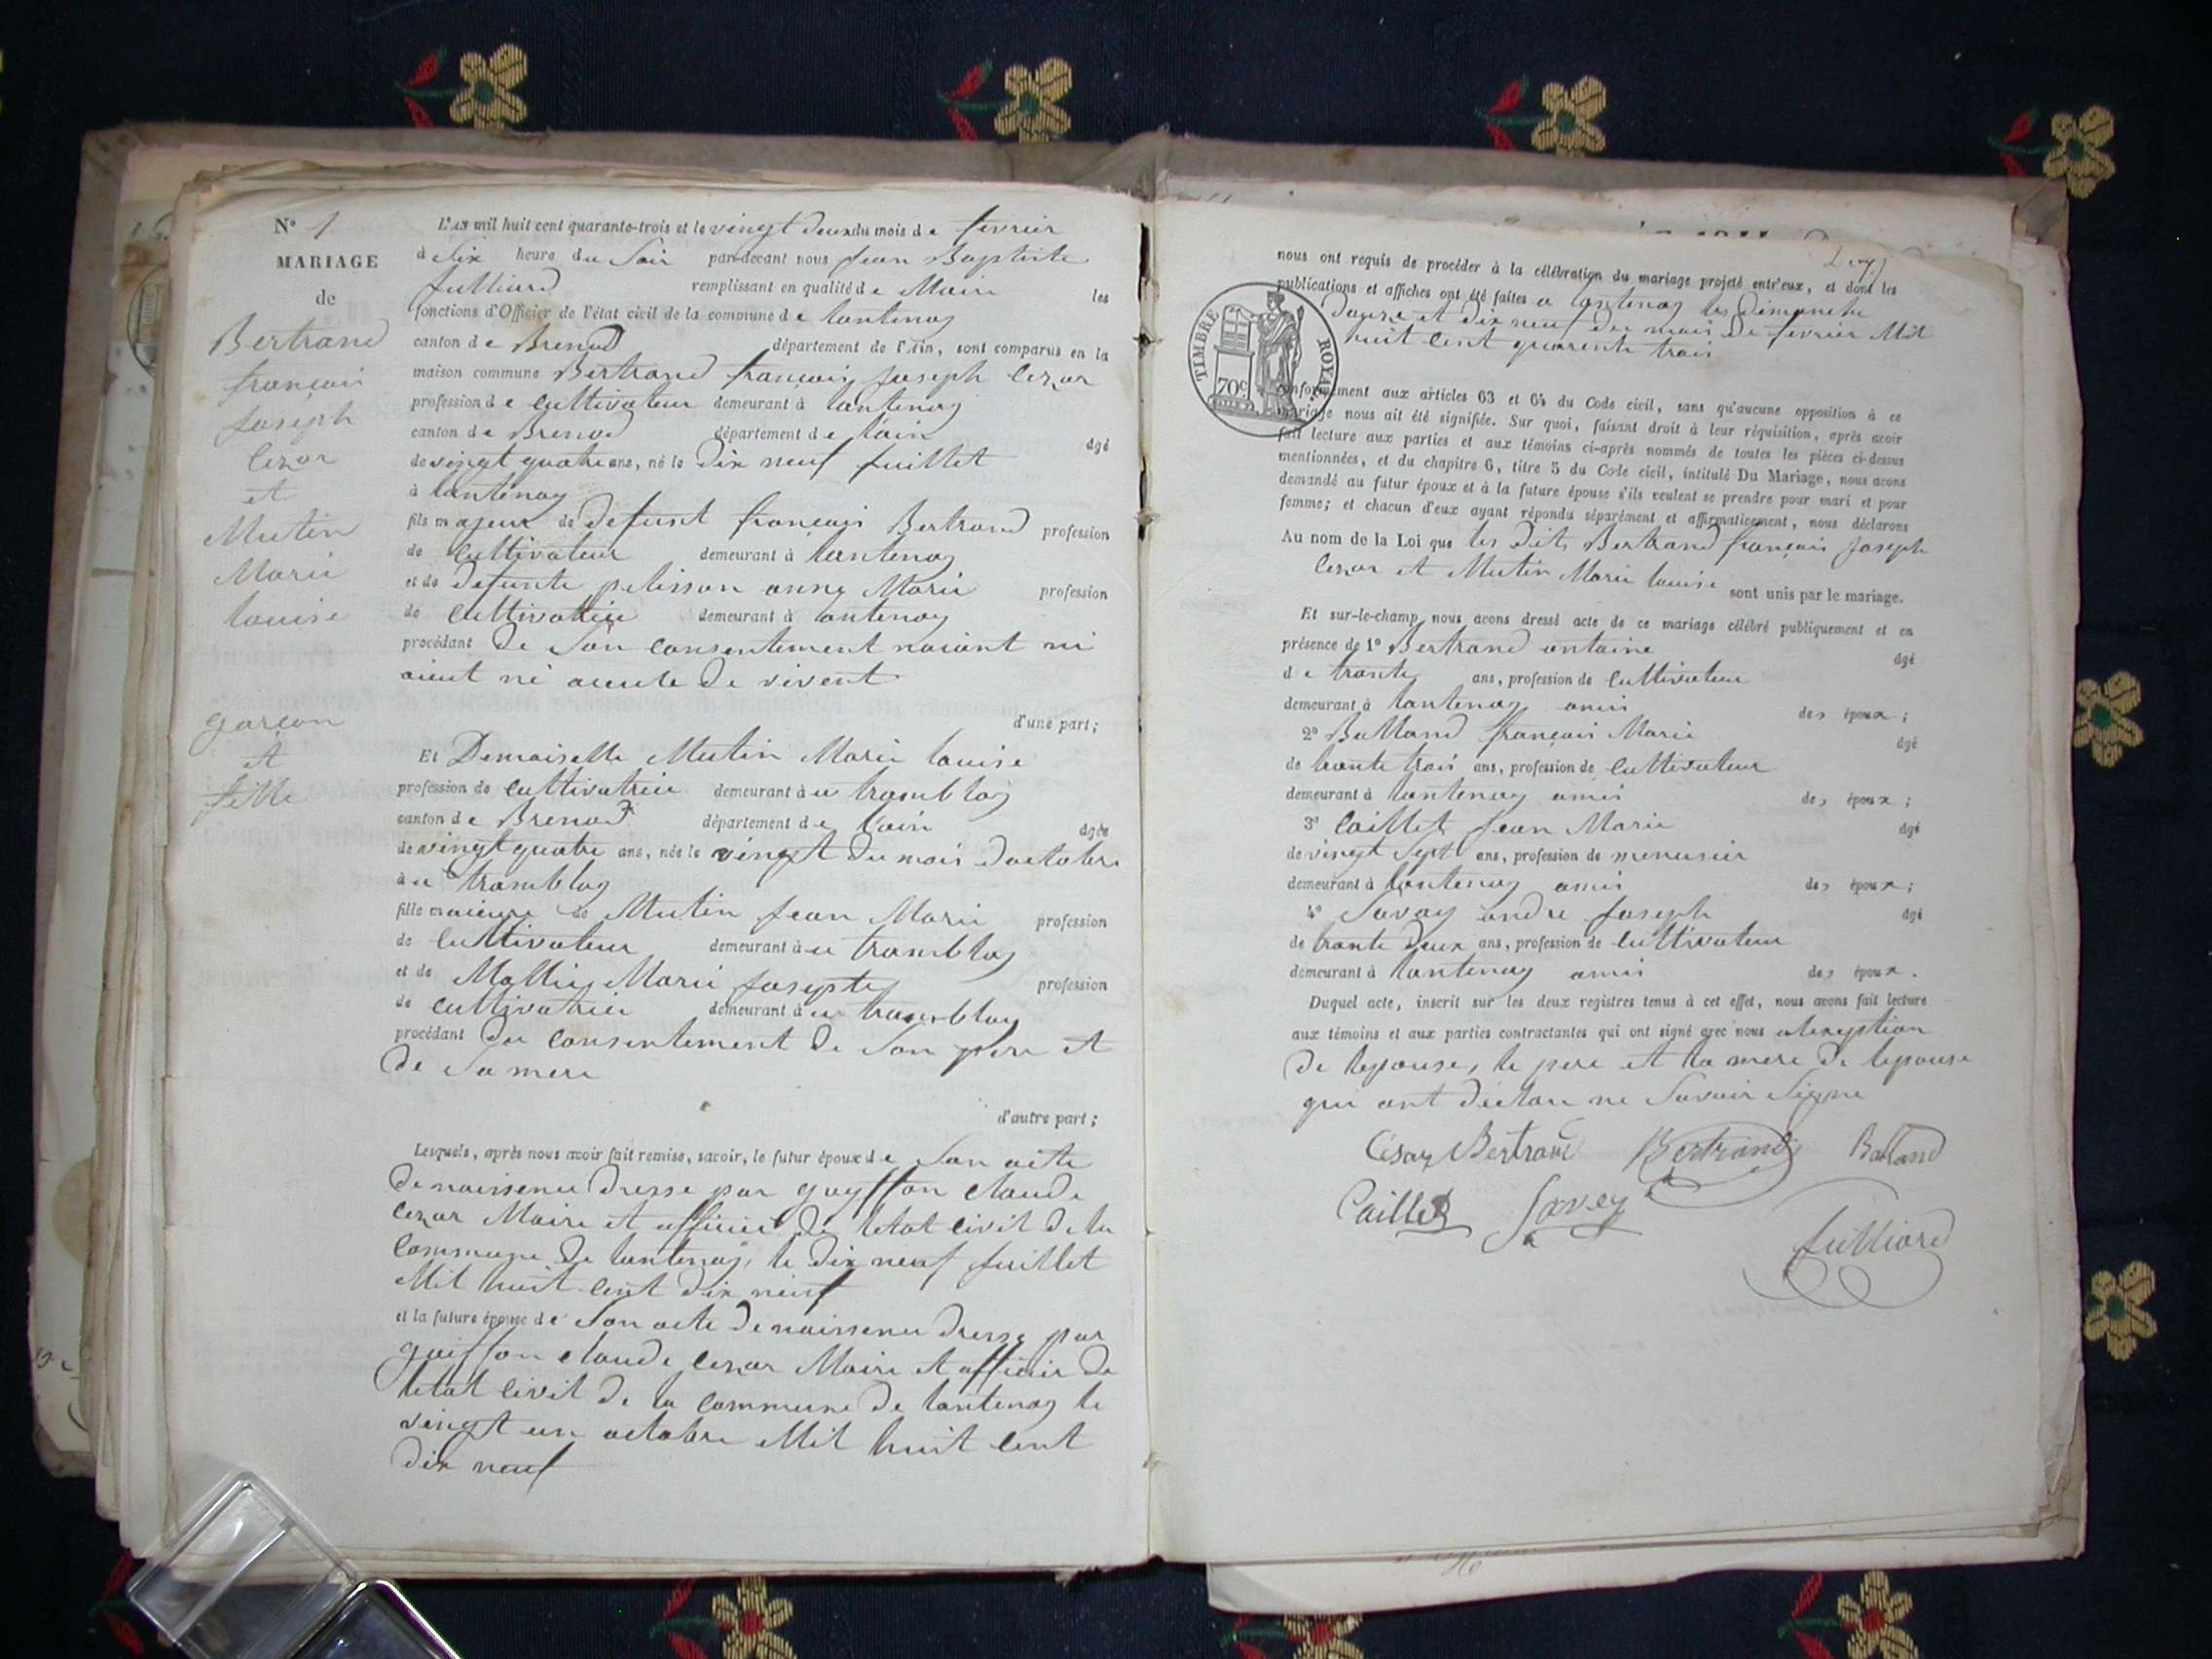 N° 1
MARIAGE
de
Bertrand
françois
Joseph
Cezar
et
Mutin
Marie
louise
garçon
et
fille
L'an mil huit cent quarante-trois et le vingt deux du mois de fevrier
à Six heure du Soir par-devant nous Jean Baptiste
Julliard remplissant en qualité de Maire les
fonctions d'Officier de l'état civil de la commune de lantenay
canton de Brenod département de l'Ain, sont comparus en la
maison commune Bertrand françois Joseph Cezar
profession de cultivateur demeurant à lantenay
canton de Brenod département de lain âgé
de vingt quatre ans, né le Dix neuf Juillet
à lantenay
fils majeur de defunt françois Bertrand profession
de cultivateur demeurant à lantenay
et de defunte pelisson anne Marie profession
de cultivatrice demeurant à lantenay
procédant de Son consentement naiant ni
aieut ni aieule de vivent
d'une part;
Et Demoiselle Mutin Marie louise
profession de cultivatrice demeurant à u tramblay
canton de Brenod département de lain âgée
de vingt quatre ans, née le vingt du mois doctobre
à u tramblay
fille maieure de Mutin Jean Marie profession
de cultivateur demeurant à u tramblay
et de Marie Josepte profession
de cultivatrice demeurant à u tramblay
procédant du consentement de Son pere et
de Sa mere
d'autre part;
Lesquels, après nous avoir fait remise, savoir, le futur époux de Son acte
de naissence dresse par guyffon claude
cezar Maire et officier de letat civil de la
commune de lantenay, le dix neuf Juillet
Mil huit cent dix neuf
et la future épouse de Son acte de naissence dresse par
guiffon claude cezar Maire et officier de
letat civil de la commune de lantenay le
vingt un octobre Mil huit cent
dix neuf
nous ont requis de procéder à la célébration du mariage projeté entr'eux, et dont les
publications et affiches ont été faites a lantenay les dimanche
douze et dix neuf du mois de fevrier Mil
huit cent quarente trois
TIMBRE ROYAL
70c
conformément aux articles 63 et 64 du Code civil, sans qu'aucune opposition à ce
mariage nous ait été signifiée. Sur quoi, faisant droit à leur réquisition, après avoir
fait lecture aux parties et aux témoins ci-après nommés de toutes les pièces ci-dessus
mentionnées, et du chapitre 6, titre 5 du Code civil, intitulé Du Mariage, nous avons
demandé au futur époux et à la future épouse s'ils veulent se prendre pour mari et pour
femme; et chacun d'eux ayant répondu séparément et affirmativement, nous déclarons
Au nom de la Loi que les dits Bertrand françois Joseph
Cezar et Mutin Marie louise sont unis par le mariage.
Et sur-le-champ nous avons dressé acte de ce mariage célébré publiquement et en
présence de 1° Bertrand antoine âgé
de trante ans, profession de cultivateur
demeurant à lantenay amis des époux;
2° Balland françois Marie âgé
de trante trois ans, profession de cultivateur
demeurant à lantenay amis des époux;
3° Caillet Jean Marie âgé
de vingt Sept ans, profession de menusier
demeurant à lantenay amis des époux;
4° Savay andre Joseph âgé
de trante deux ans, profession de cultivateur
demeurant à lantenay amis des époux.
Duquel acte, inscrit sur les deux registres tenus à cet effet, nous avons fait lecture
aux témoins et aux parties contractantes qui ont signé avec nous alexeption
de lepouse, le pere et la mere de lepouse
qui ont déclare ne Savoir Signe
César Bertrand Bertrand Balland
Caillet Savey
Julliard